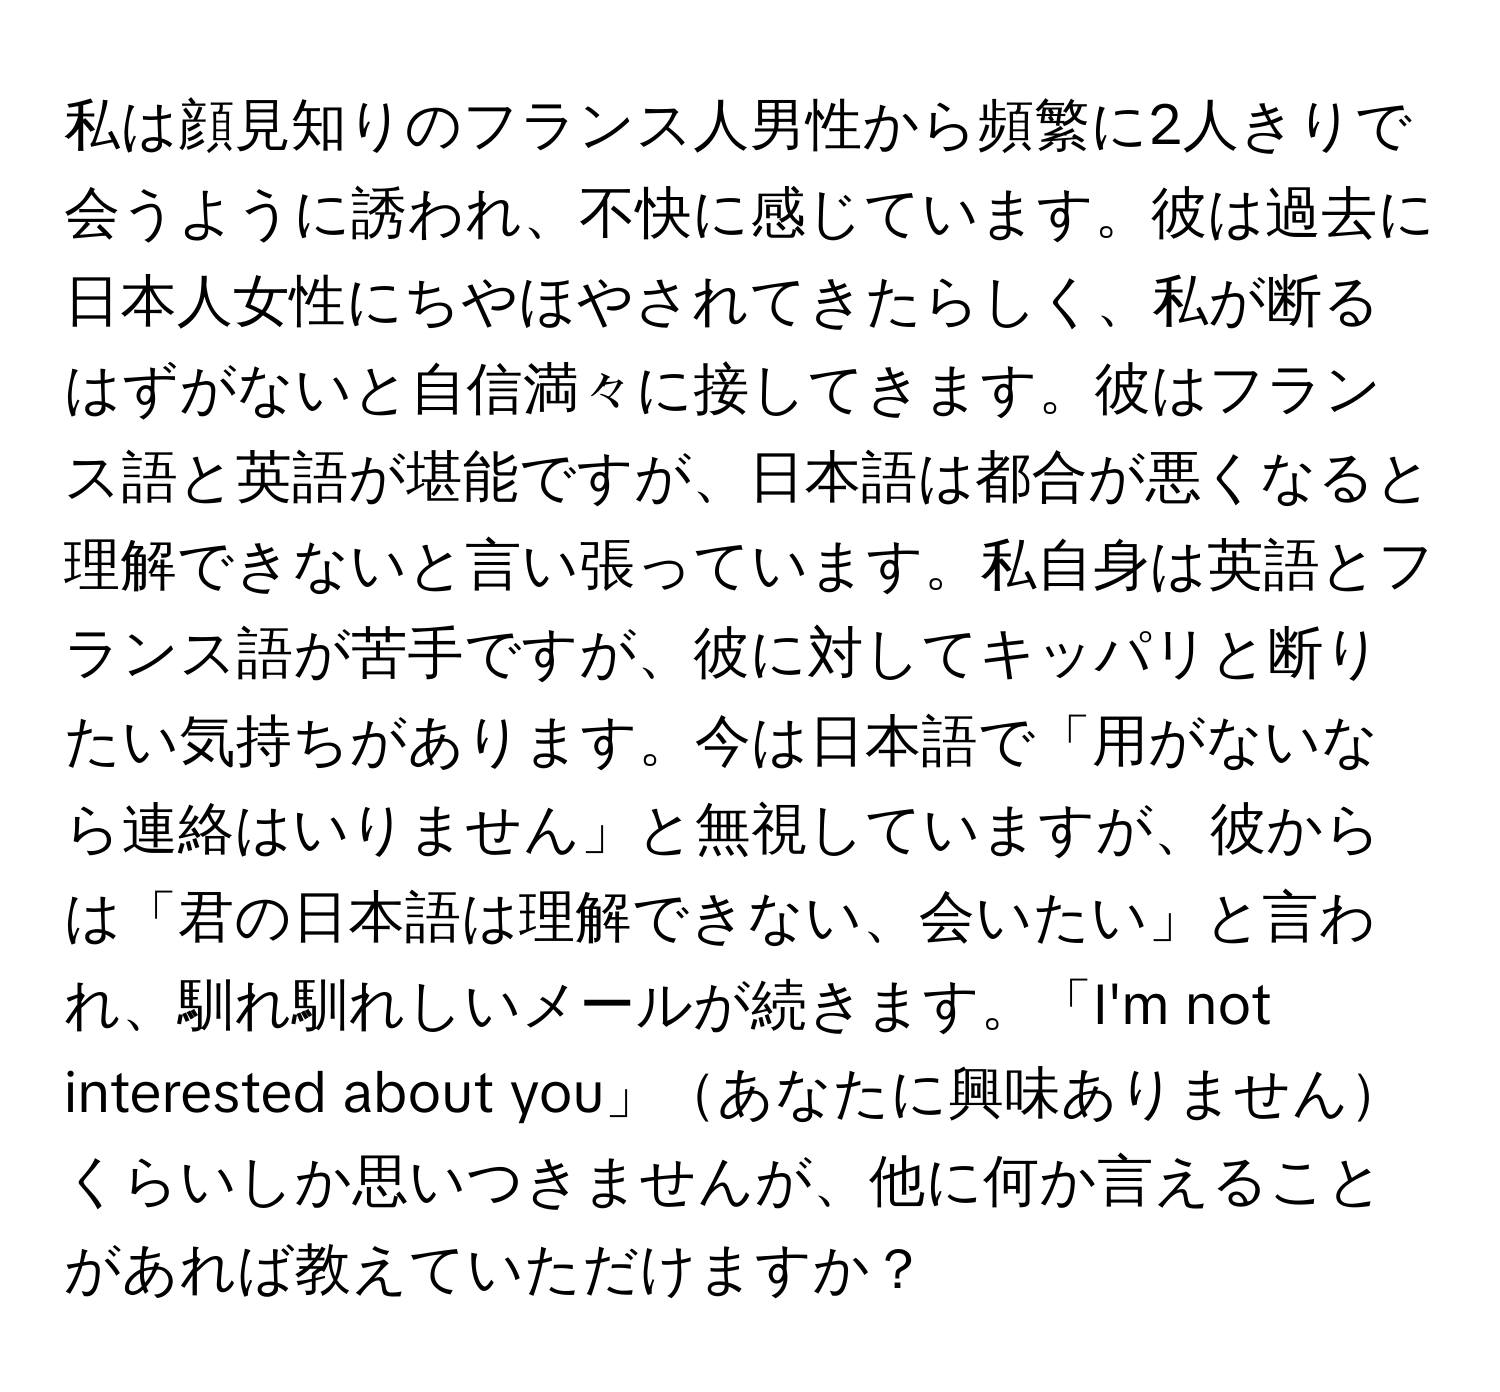 私は顔見知りのフランス人男性から頻繁に2人きりで
会うように誘われ、不快に感じています。彼は過去に
日本人女性にちやほやされてきたらしく、私が断る
はずがないと自信満々に接してきます。彼はフラン
ス語と英語が堪能ですが、日本語は都合が悪くなると
理解できないと言い張っています。私自身は英語とフ
ランス語が苦手ですが、彼に対してキッパリと断り
たい気持ちがあります。今は日本語で「用がないな
ら連絡はいりません」と無視していますが、彼から
は「君の日本語は理解できない、会いたい」と言わ
れ、馴れ馴れしいメールが続きます。「I'm not
interested about you」（あなたに興味ありません）
くらいしか思いつきませんが、他に何か言えること
があれば教えていただけますか？